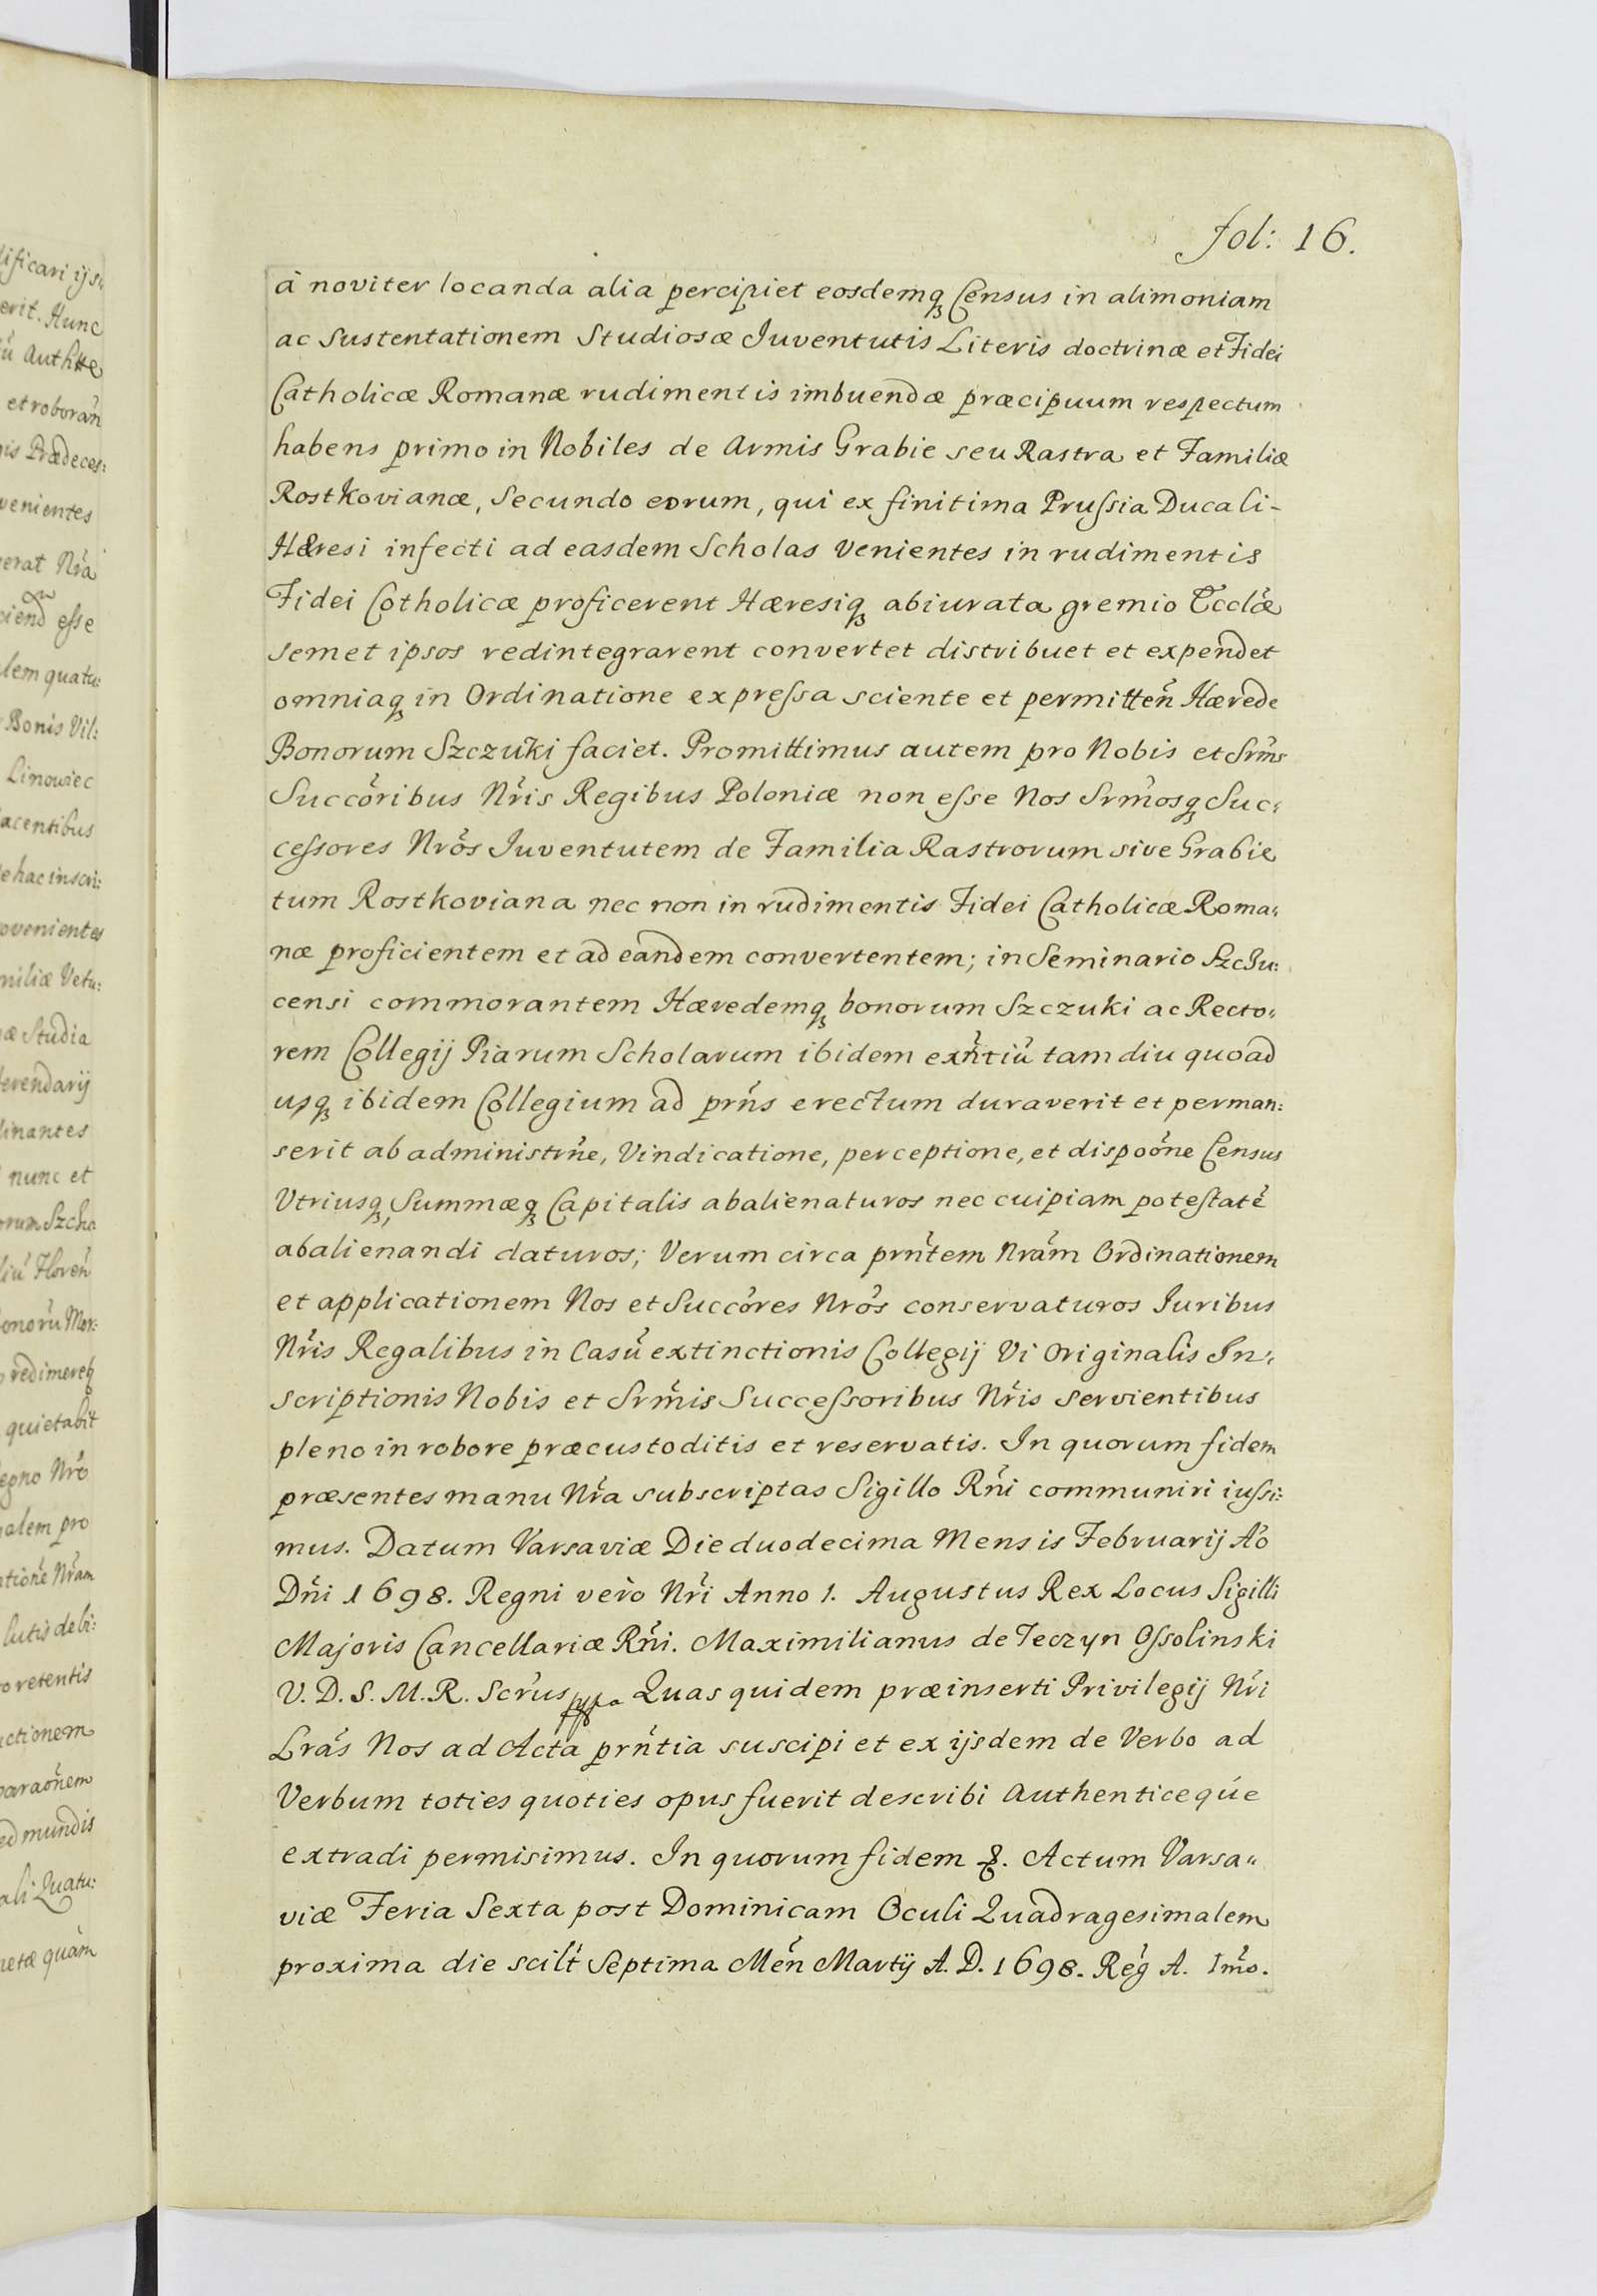 fol: 16.
à noviter locanda alia percipiet eosdemq Census in alimoniam
ac Sustentationem Studiosæ Iuventutis Literis doctrinæ et Fidei
Catholicæ Romanæ rudimentis imbuendæ præcipuum respectum
habens primo in Nobiles de Armis Grabie seu Rastra et Familiæ
Rostkovianæ, Secundo eorum, qui ex finitima Prussia Ducali-
Hæresi infecti ad easdem Scholas venientes in rudimentis
Fidei Cotholicæ proficerent Hæresiq abiurata gremio Ecclæ
semet ipsos redintegrarent convertet distribuet et expendet
omniaq in Ordinatione expressa sciente et permitten Hærede
Bonorum Szczuki faciet. Promittimus autem pro Nobis et Srms
Succoribus Nris Regibus Poloniæ non esse Nos Srmosq Suc:
cessores Nros Iuventutem de Familia Rastrorum sive Grabie
tum Rostkoviana nec non in rudimentis Fidei Catholicæ Roma:
næ proficientem et ad eandem convertentem; in Seminario Szczu:
censi commorantem Hæredemq bonorum Szczuki ac Recto:
rem Collegij Piarum Scholarum ibidem exntiu tam diu quoad
usq ibidem Collegium ad prns erectum duraverit et perman:
serit ab administrne, Vindicatione, perceptione, et dispoone Census
Vtriusq, Summæq Capitalis abalienaturos nec cuipiam potestate
abalienandi daturos; Verum circa prntem Nram Ordinationem
et applicationem Nos et Succores Nros conservaturos Iuribus
Nris Regalibus in Casu extinctionis Collegij Vi Originalis In:
scriptionis Nobis et Srmis Successoribus Nris servientibus
pleno in robore præcustoditis et reservatis. In quorum fidem
præsentes manu Nra subscriptas Sigillo Rni communiri iussi:
mus. Datum Varsaviæ Die duodecima Mensis Februarij Ao
Dni 1698. Regni vero Nri Anno 1. Augustus Rex Locus Sigilli
Majoris Cancellariæ Rni. Maximilianus de Teczyn Ossolinski
V. D. S. M. R. Scrus Quas quidem præinserti Privilegij Nri
Lras Nos ad Acta prntia suscipi et ex ijsdem de Verbo ad
Verbum toties quoties opus fuerit describi Authenticeque
extradi permisimus. In quorum fidem &. Actum Varsa"
viæ Feria Sexta post Dominicam Oculi Quadragesimalem
proxima die scilt Septima Men Martij A. D. 1698. Reg A. Imo.